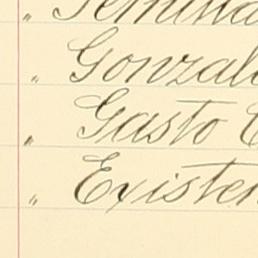 " Gonzal
" Gasto
" Existen